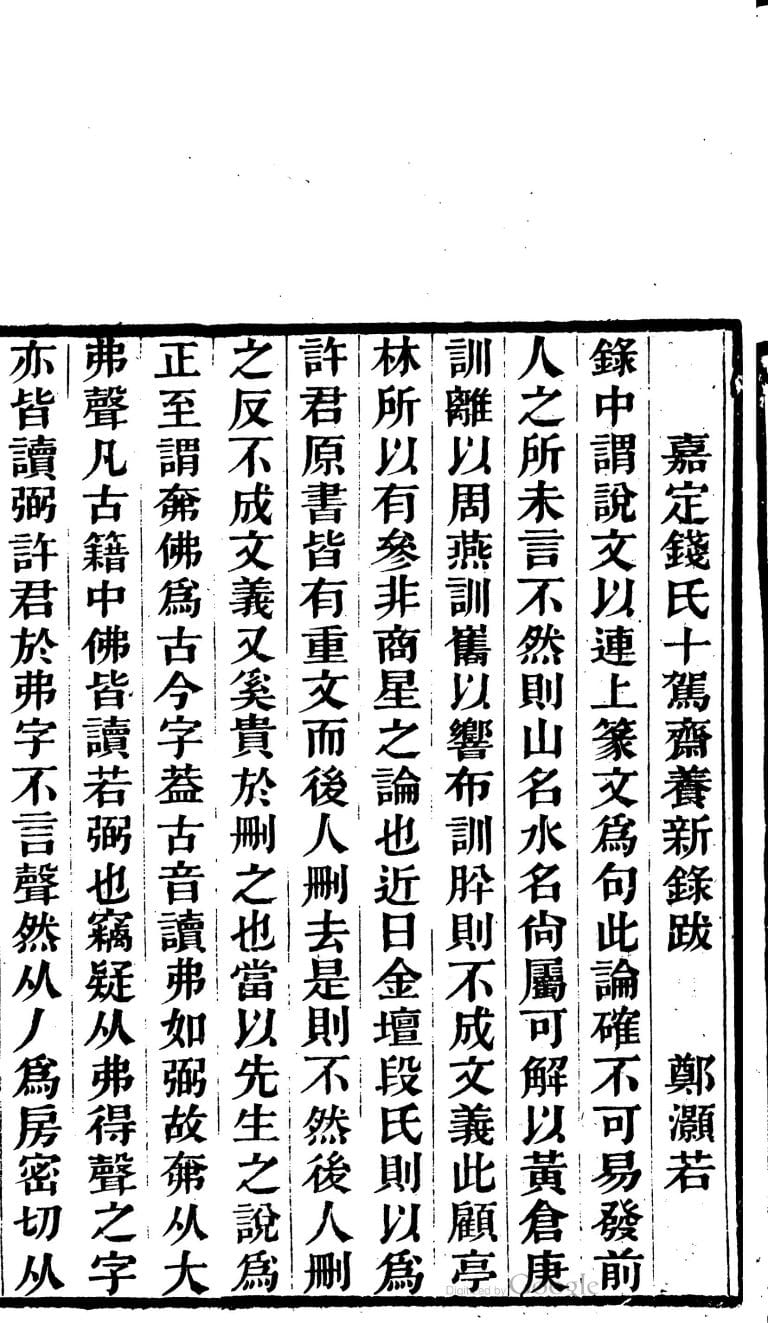 嘉定錢氏十駕齋養新錄跋 鄭灝若
錄中謂說文以連上篆文爲句此論確不可易發前
人之所未言不然則山名水名尙屬可解以黃倉庚
訓離以周燕訓巂以響布訓肸則不成文義此顧亭
林所以有參非商星之論也近日金壇段氏則以爲
許君原書皆有重文而後人刪去是則不然後人刪
之反不成文義又奚貴於刪之也當以先生之說爲
正至謂𢍉佛爲古今字葢古音讀弗如弼故𢍉从大
弗聲凡古籍中佛皆讀若弼也竊疑从弗得聲之字
亦皆讀弼許君於弗字不言聲然从丿爲房密切从
Digitized by Google